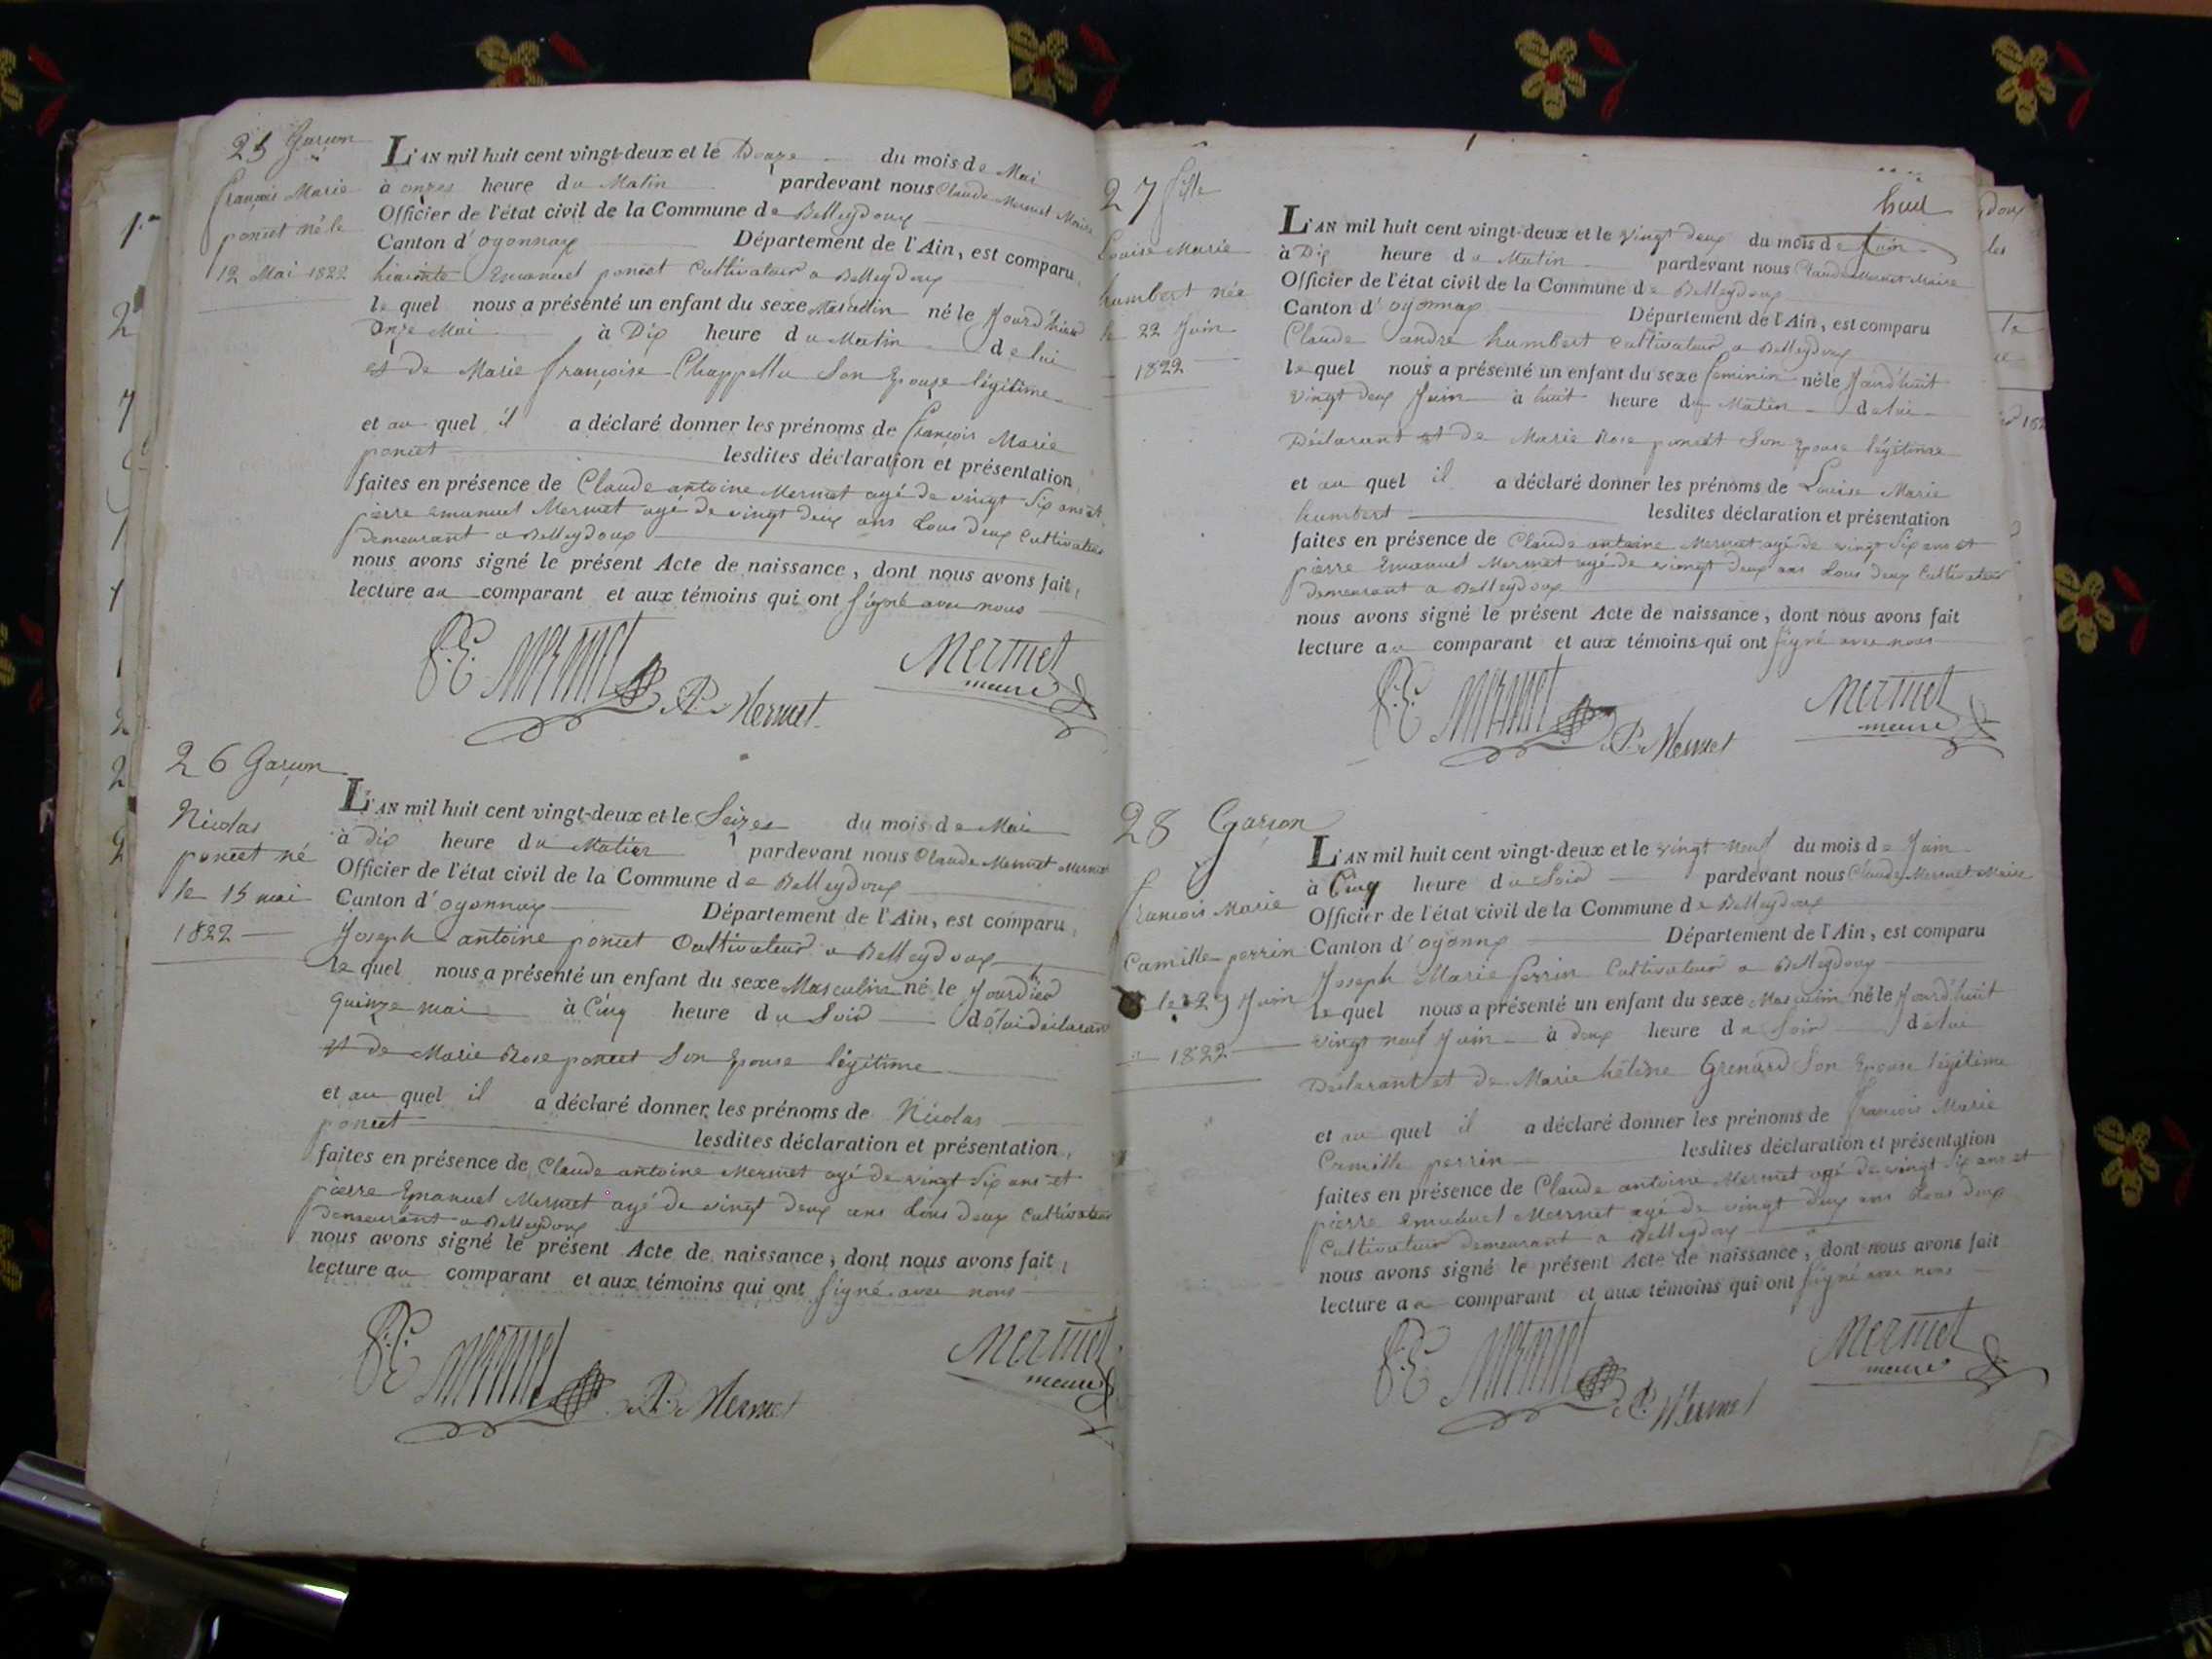 25 Garçon
françois Marie
poncet né le
12 Mai 1822
L'AN mil huit cent vingt-deux et le Douze du mois de Mai
à onzes heure du Matin pardevant nous Claude Mermet Maire
Officier de l'état civil de la Commune de Belleydoux
Canton d'oyonnax Département de l'Ain, est comparu
hiacinte Emanuel poncet Cultivateur a Belleydoux
lequel nous a présenté un enfant du sexe Masculin né le
onze Mai à Dix heure du Matin de lui
et de Marie françoise Chappellu Son Epouse légitime
et au quel il a déclaré donner les prénoms de françois Marie
poncet lesdites déclaration et présentation
faites en présence de Claude antoine Mermet agé de vingt Six ans et
pierre emanuel Mermet agé de vingt deux ans tous deux cultivateur
demeurant a Belleydoux
nous avons signé le présent Acte de naissance, dont nous avons fait
lecture au comparant et aux témoins qui ont signé avec nous
P. E. Mermet
Mermet
maire
A. Mermet
26 Garçon
Nicolas
poncet né
le 15 mai
1822
L'AN mil huit cent vingt-deux et le Seizes du mois de Mai
à dix heure du Matin pardevant nous Claude Mermet
Officier de l'état civil de la Commune de Belleydoux
Canton d'oyonnax Département de l'Ain, est comparu
Joseph antoine poncet Cultivateur a Belleydoux
lequel nous a présenté un enfant du sexe Masculin né le
quinze mai à Cinq heure du Soir de lui déclarant
et de Marie Rose poncet Son Epouse légitime
et au quel il a déclaré donner les prénoms de Nicolas
poncet lesdites déclaration et présentation
faites en présence de Claude antoine Mermet agé de vingt Six ans et
pierre Emanuel Mermet agé de vingt deux ans tous deux cultivateur
demeurant a Belleydoux
nous avons signé le présent Acte de naissance, dont nous avons fait
lecture au comparant et aux témoins qui ont signé avec nous
P. E. Mermet
Mermet
maire
A. Mermet
huit
27 fille
Louise Marie
humbert née
le 22 Juin
1822
L'AN mil huit cent vingt-deux et le vingt deux du mois de Juin
à Dix heure du Matin pardevant nous Claude Mermet Maire
Officier de l'état civil de la Commune de Belleydoux
Canton d'oyonnax Département de l'Ain, est comparu
Claude andre humbert cultivateur a Belleydoux
lequel nous a présenté un enfant du sexe feminin né le Jourd'huit
vingt deux Juin à huit heure du Matin de lui
Déclarant et de Marie Rose poncet Son Epouse légitime
et au quel il a déclaré donner les prénoms de Louise Marie
humbert lesdites déclaration et présentation
faites en présence de Claude antoine Mermet agé de vingt Six ans et
pierre Emanuel Mermet agé de vingt deux ans tous deux Cultivateur
demeurant a Belleydoux
nous avons signé le présent Acte de naissance, dont nous avons fait
lecture au comparant et aux témoins qui ont signé avec nous
P. E. Mermet
Mermet
maire
A. Mermet
28 Garçon
francois Marie
Camille perrin
le 29 Juin
1822
L'AN mil huit cent vingt-deux et le vingt neuf du mois de Juin
à Cinq heure du Soir pardevant nous Claude Mermet Maire
Officier de l'état civil de la Commune de Belleydoux
Canton d'oyonnx Département de l'Ain, est comparu
Joseph Marie perrin Cultivateur a Belleydoux
lequel nous a présenté un enfant du sexe Masculin né le Jourd'huit
vingt neuf Juin à deux heure du Soir de lui
Déclarant et de Marie hélène Grenard Son Epouse légitime
et au quel il a déclaré donner les prénoms de francois Marie
Camille perrin lesdites déclaration et présentation
faites en présence de Claude antoine Mermet agé de vingt Six ans et
pierre emanuel Mermet agé de vingt deux ans tous deux
Cultivateur demeurant a Belleydoux
nous avons signé le présent Acte de naissance, dont nous avons fait
lecture au comparant et aux témoins qui ont signé avec nous
P. E. Mermet
Mermet
maire
A. Mermet